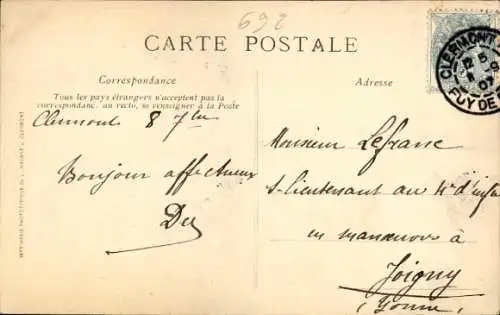 692
CARTE POSTALE
Correspondance
Tous les pays étrangers n'acceptent pas la
correspondance au recto, se renseigner à la Poste
Clermont 8 7bre
Bonjour affectueux
Adresse
Monsieur Lefranc
s-lieutenant au 4e d'infie
en manœuvres à
Joigny
(Yonne)
CLERMONT
PUY DE